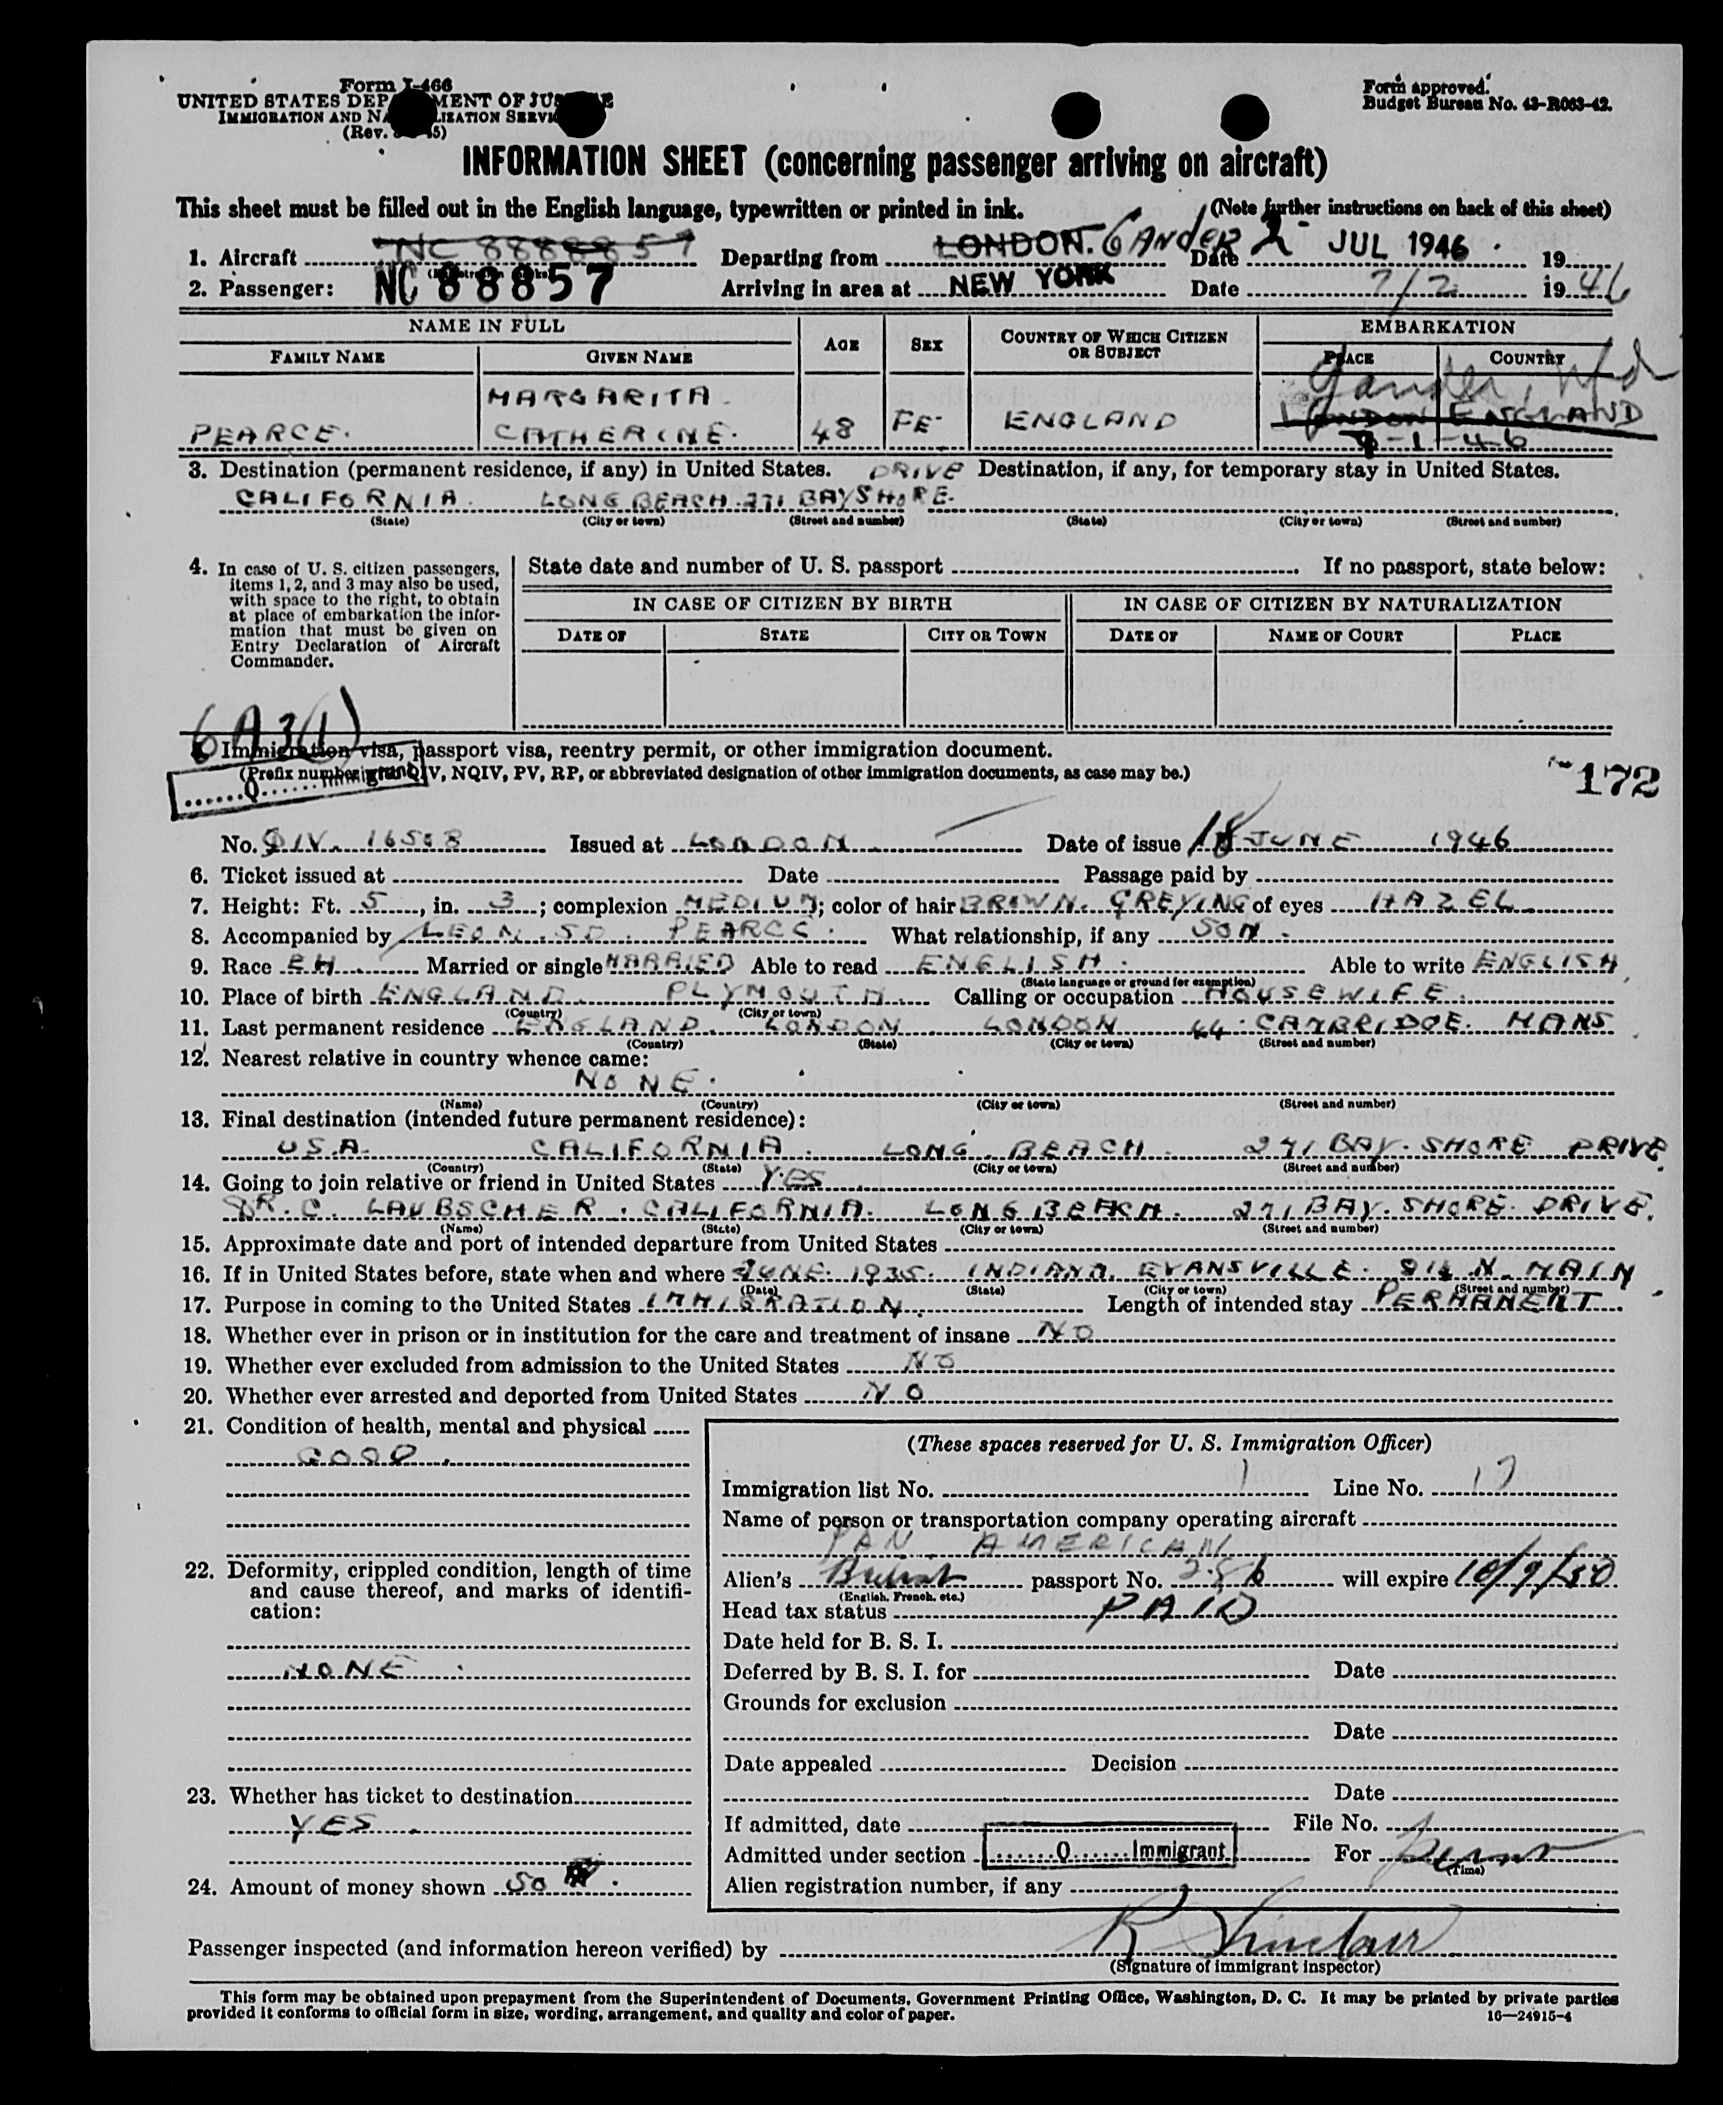 Form I-466
UNITED STATES DEPARTMENT OF JUSTICE
IMMIGRATION AND NATURALIZATION SERVICE
(Rev. 45)
Form approved.
Budget Bureau No. 43-R063-42.
INFORMATION SHEET (concerning passenger arriving on aircraft)
This sheet must be filled out in the English language, typewritten or printed in ink. (Note further instructions on back of this sheet)
1. Aircraft Departing from LONDON. GANDER Date 2 - JUL 1946 . 19
2. Passenger: NC 88857 Arriving in area at NEW YORK Date 7/2 1946
NAME IN FULL AGE SEX COUNTRY OF WHICH CITIZEN OR SUBJECT EMBARKATION
FAMILY NAME GIVEN NAME PLACE COUNTRY
MARGARITA Gander, Nfd
PEARCE. CATHERINE. 48 FE ENGLAND LONDON ENGLAND
-1-46
3. Destination (permanent residence, if any) in United States. DRIVE Destination, if any, for temporary stay in United States.
CALIFORNIA. LONG BEACH. 271 BAYSHORE.
(State) (City or town) (Street and number) (State) (City or town) (Street and number)
4. In case of U. S. citizen passengers, items 1, 2, and 3 may also be used, with space to the right, to obtain at place of embarkation the information that must be given on Entry Declaration of Aircraft Commander.
State date and number of U. S. passport If no passport, state below:
IN CASE OF CITIZEN BY BIRTH IN CASE OF CITIZEN BY NATURALIZATION
DATE OF STATE CITY OR TOWN DATE OF NAME OF COURT PLACE
6A3(1)
Immigration visa, passport visa, reentry permit, or other immigration document.
(Prefix number with QIV, NQIV, PV, RP, or abbreviated designation of other immigration documents, as case may be.)
Q Immigrant
172
No. QIV. 16508 Issued at LONDON Date of issue 18 JUNE 1946
6. Ticket issued at Date Passage paid by
7. Height: Ft. 5, in. 3; complexion MEDIUM; color of hair BROWN. GREYING of eyes HAZEL
8. Accompanied by LEON. PEARCE. What relationship, if any SON.
9. Race Married or single MARRIED Able to read ENGLISH. Able to write ENGLISH
(State language or ground for exemption)
10. Place of birth ENGLAND. PLYMOUTH. Calling or occupation HOUSEWIFE.
(Country) (City or town)
11. Last permanent residence ENGLAND. LONDON LONDON 44. CAMBRIDGE. MANS
(Country) (State) (City or town) (Street and number)
12. Nearest relative in country whence came:
NONE.
(Name) (Country) (City or town) (Street and number)
13. Final destination (intended future permanent residence):
USA. CALIFORNIA. LONG BEACH. 271 BAY. SHORE DRIVE.
(Country) (State) (City or town) (Street and number)
14. Going to join relative or friend in United States YES
DR. C. LAUBSCHER. CALIFORNIA. LONG BEACH. 271 BAY. SHORE. DRIVE.
(Name) (State) (City or town) (Street and number)
15. Approximate date and port of intended departure from United States
16. If in United States before, state when and where JUNE. 1935. INDIANA. EVANSVILLE. 914 N. MAIN
(Date) (State) (City or town) (Street and number)
17. Purpose in coming to the United States IMMIGRATION. Length of intended stay PERMANENT.
18. Whether ever in prison or in institution for the care and treatment of insane NO
19. Whether ever excluded from admission to the United States NO
20. Whether ever arrested and deported from United States NO
21. Condition of health, mental and physical
GOOD.
22. Deformity, crippled condition, length of time and cause thereof, and marks of identification:
NONE.
23. Whether has ticket to destination
YES.
24. Amount of money shown 50
(These spaces reserved for U. S. Immigration Officer)
Immigration list No. 1 Line No. 17
Name of person or transportation company operating aircraft
PAN AMERICAN
Alien's British passport No. will expire 10/9/50
(English, French, etc.)
Head tax status PAID
Date held for B. S. I.
Deferred by B. S. I. for Date
Grounds for exclusion
Date
Date appealed Decision
Date
If admitted, date File No.
Admitted under section Q Immigrant For perm
(Time)
Alien registration number, if any
Passenger inspected (and information hereon verified) by R Sinclair
(Signature of immigrant inspector)
This form may be obtained upon prepayment from the Superintendent of Documents, Government Printing Office, Washington, D. C. It may be printed by private parties
provided it conforms to official form in size, wording, arrangement, and quality and color of paper. 16—24915-4